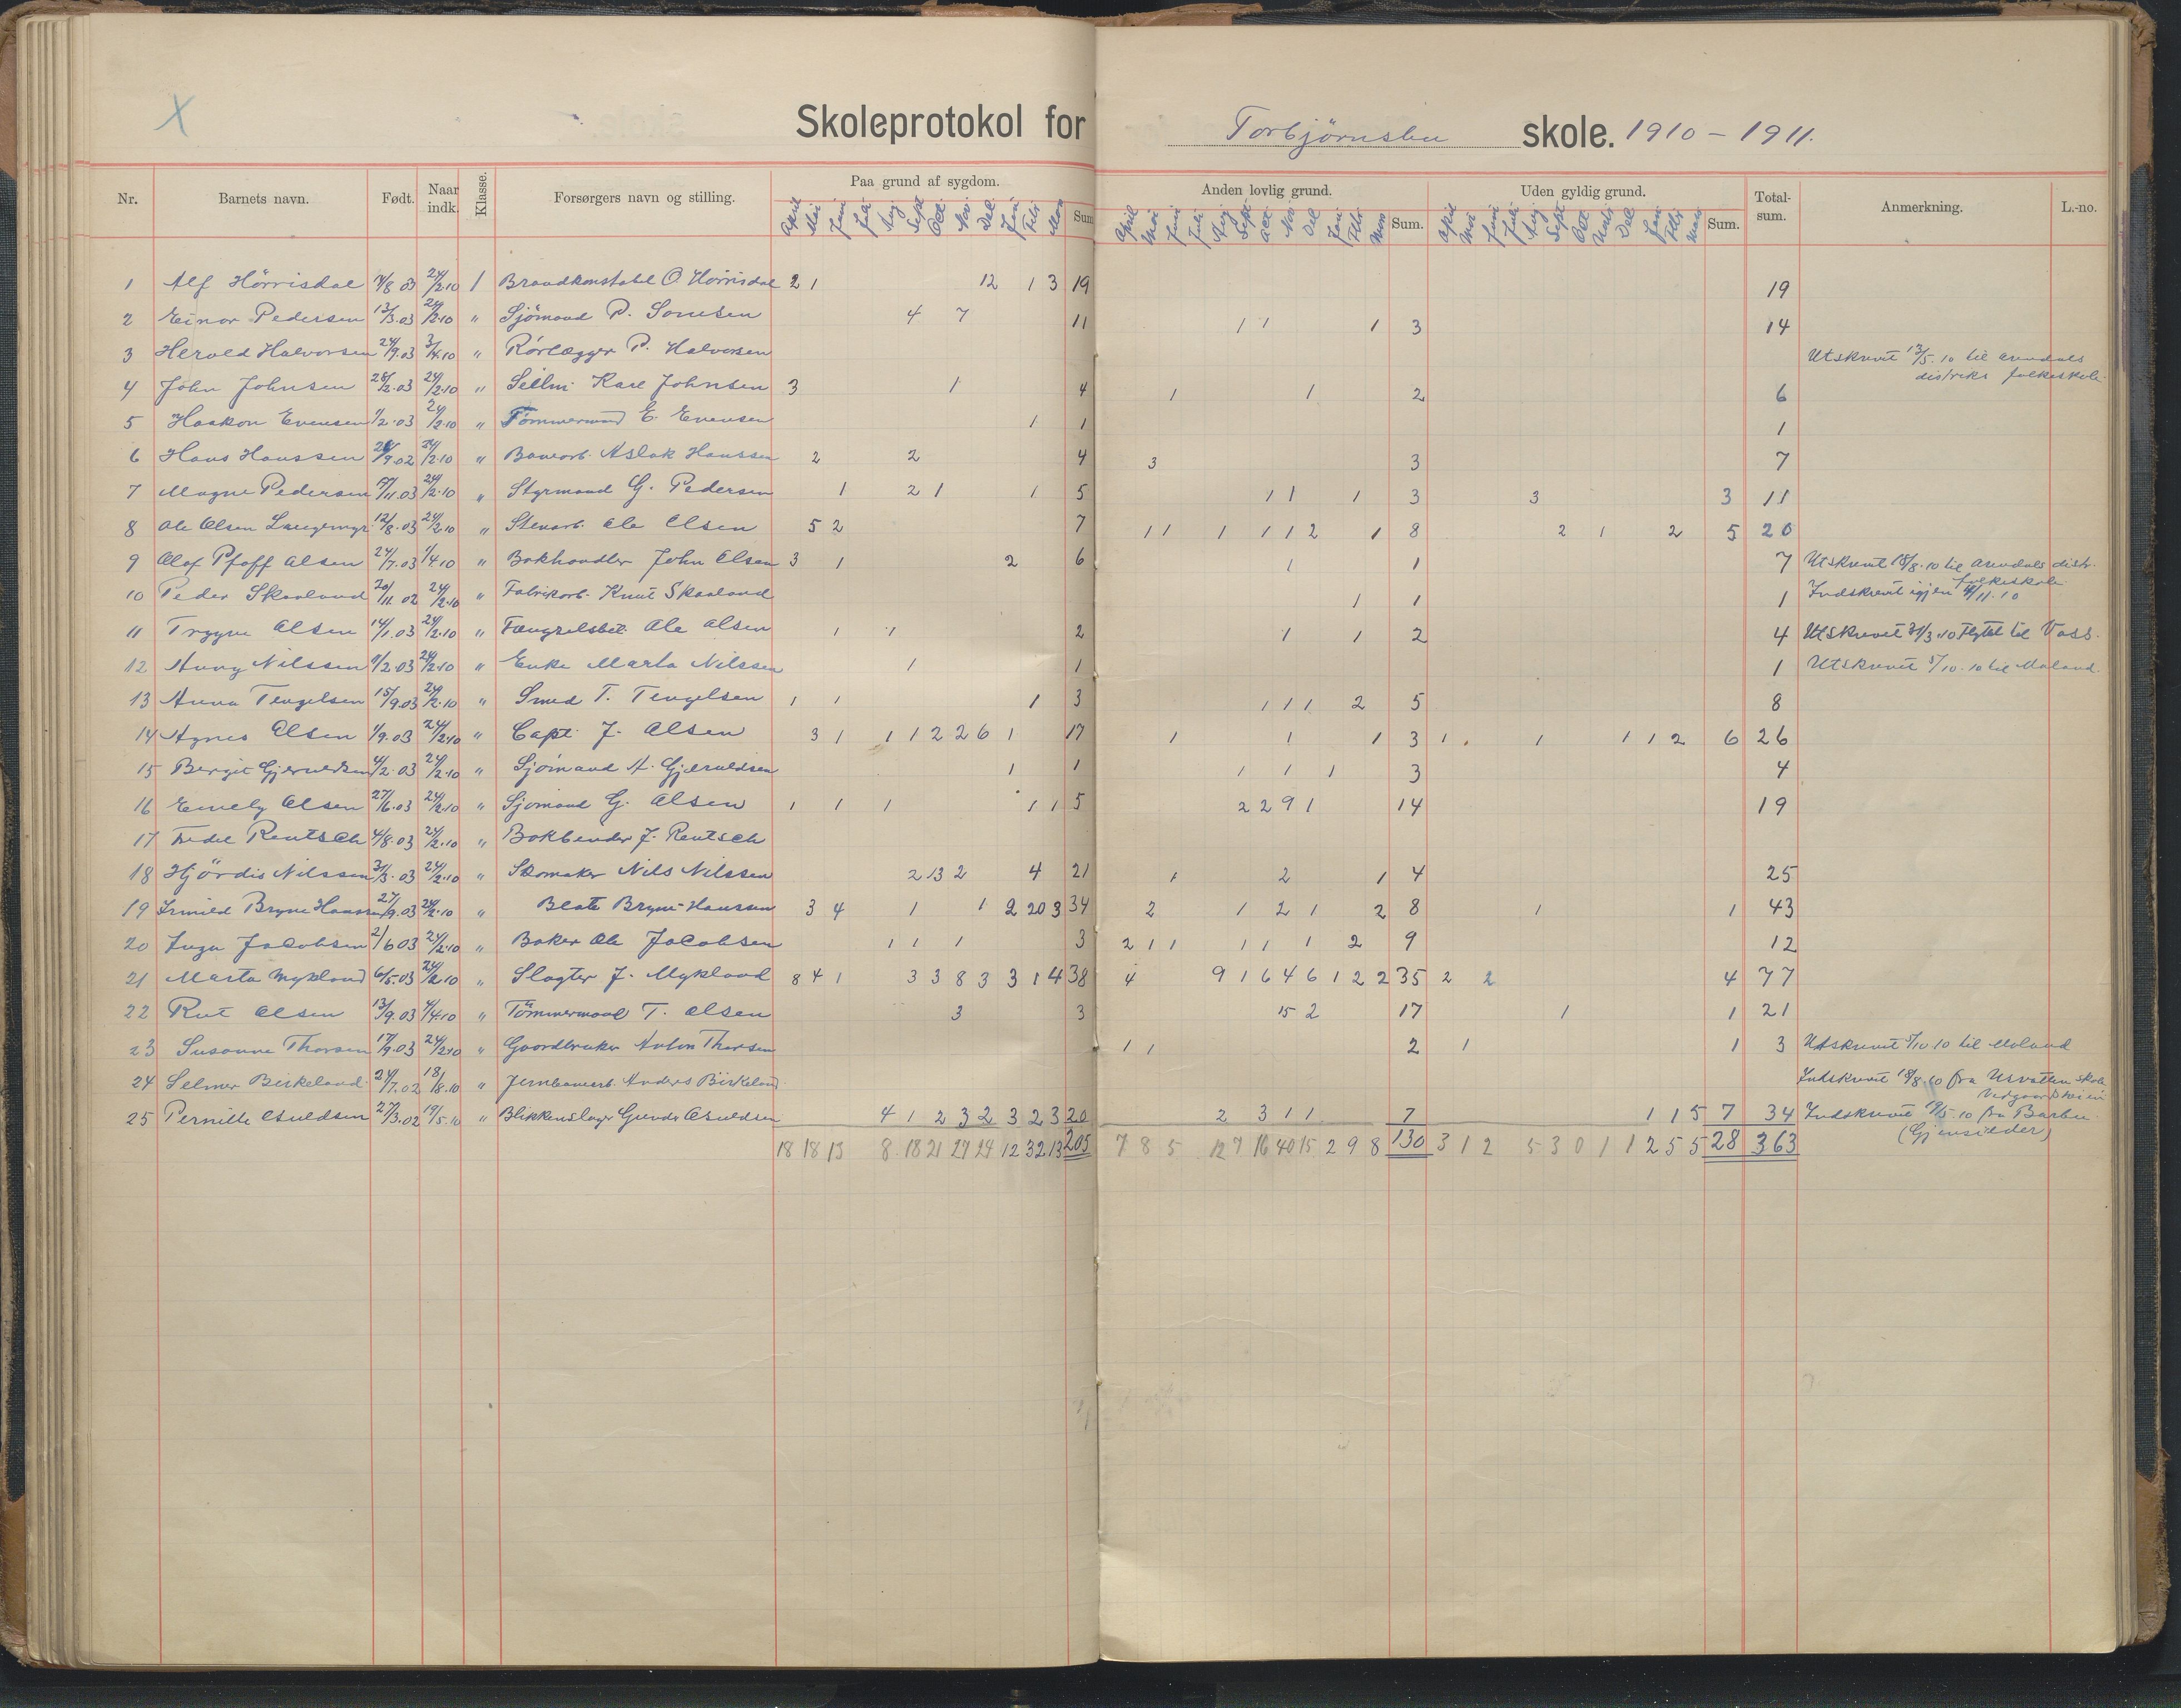 X
Skoleprotokol for Torbjørnsbu skole. 1910 – 1911.
Nr. Barnets navn. Født. Naar indk. Klasse. Forsørgers navn og stilling. Paa grund af sygdom. Anden lovlig grund. Uden gyldig grund. Total-sum. Anmerkning. L.-no.
April Mai Juni Juli Aug Sept Oct. Nov. Dec. Jan Feb Mars Sum April Mai Juni Juli Aug Sept Oct Nov Dec Jan Feb Mars Sum. April Mai Juni Juli Aug Sept Oct Novb Dec Jan Feb Mars Sum.
1 Alf Hörrisdal 24/2.10 1 Brandkonstabel O Hörrisdal 2 1 12 1 3 19 19
2 Einar Pedersen 13/3.03 24/2.10 " Sjömand P. 4 7 11 1 1 1 3 14
3 Herold Halvorsen 24/9.03 3/4.10 " Rörlægger P. Halvorsen Utskrevet 13/5.10 til Arendals
distrikts folkeskole.
4 John Johnsen 28/2.03 24/2.10 " Karl Johnsen 3 1 4 1 1 2 6
5 Haakon Evensen 1/2.03 24/2.10 " Tömmermand E. Evensen 1 1 1
6 Hans Hanssen 24/2.10 " Banearb. Aslak Hanssen 2 2 4 3 3 7
7 Magne Pedersen 24/2.10 " Styrmand G. Pedersen 1 2 1 1 5 1 1 1 3 3 3 11
8 Ole Olsen Langemyr 12/8.03 24/2.10 " Stenarb. Ole Olsen 5 2 7 1 1 1 1 1 2 1 8 2 1 2 5 20
9 Olaf Pfaff Olsen 24/7.03 1/4.10 " Bokhandler John Olsen 3 1 2 6 1 1 7 Utskrevet 18/8.10 til Arendals distr.
folkeskole
10 Peder Skaaland 20/11.02 24/2.10 " Fabrikarb. Knut Skaaland 1 1 1 Indskrevet igjen 4/11.10
11 Trygve Olsen 14/1.03 24/2.10 " Fængselsbet. Ole Olsen 1 1 2 1 1 2 4 Utskrevet 31/3.10 Flyttet til Voss.
12 Anny Nilssen 24/2.10 " Enke Marta Nilssen 1 1 1 Utskrevet 5/10.10 til Moland.
13 Anna Tengelsen 15/9.03 24/2.10 " Smed T. Tengelsen 1 1 1 3 1 1 1 2 5 8
14 Agnes Olsen 1/9.03 24/2.10 " Capt. J. Olsen 3 1 1 1 2 2 6 1 17 1 1 1 3 1 1 1 1 2 6 26
15 Bergit Gjeruldsen 4/2.03 24/2.10 " Sjömand A. Gjeruldsen 1 1 1 1 1 3 4
16 Emely Olsen 27/6.03 24/2.10 " Sjömand G. Olsen 1 1 1 1 1 5 2 2 9 1 14 19
17 Rentsch 4/8.03 24/2.10 " Bokbinder J. Rentsch
18 Hjördis Nilssen 3/3.03 24/2.10 " Skomaker Nils Nilssen 2 13 2 4 21 1 2 1 4 25
19 Bryne Hanssen 27/9.03 24/2.10 " Beate Bryne-Hanssen 3 4 1 1 2 20 3 34 2 1 2 1 2 8 1 1 43
20 Inga Jacobsen 2/6 03 24/2.10 " Baker Ole Jacobsen 1 1 1 3 2 1 1 1 1 1 2 9 12
21 Marta Mykland 6/5.03 24/2.10 " Slagter J. Mykland 8 4 1 3 3 8 3 3 1 4 38 4 9 1 6 4 6 1 2 2 35 2 2 4 77
22 Rut Olsen 13/9.03 4/4.10 " Tömmermand T. Olsen 3 3 15 2 17 1 1 21
23 Susanne Thorsen 17/9.03 24/2.10 " Gaardbruker Anton Thorsen 1 1 2 1 1 3 Utskrevet 5/10.10 til Moland
24 Selmer Birkeland 24/7.02 18/8.10 " Jernbanearb. Anders Birkeland Indskrevet 18/8.10 fra skole
25 Pernille Osuldsen 27/3.02 19/5.10 " Blikkenslager Gunder Osuldsen 4 1 2 3 2 3 2 3 20 2 3 1 1 7 1 1 5 7 34 Indskrevet 19/5.10 fra Barbu
(Gjensidder)
18 18 13 8 18 21 27 24 12 32 13 205 7 8 5 12 7 16 40 15 2 9 8 130 3 1 2 5 3 0 1 1 2 5 5 28 363